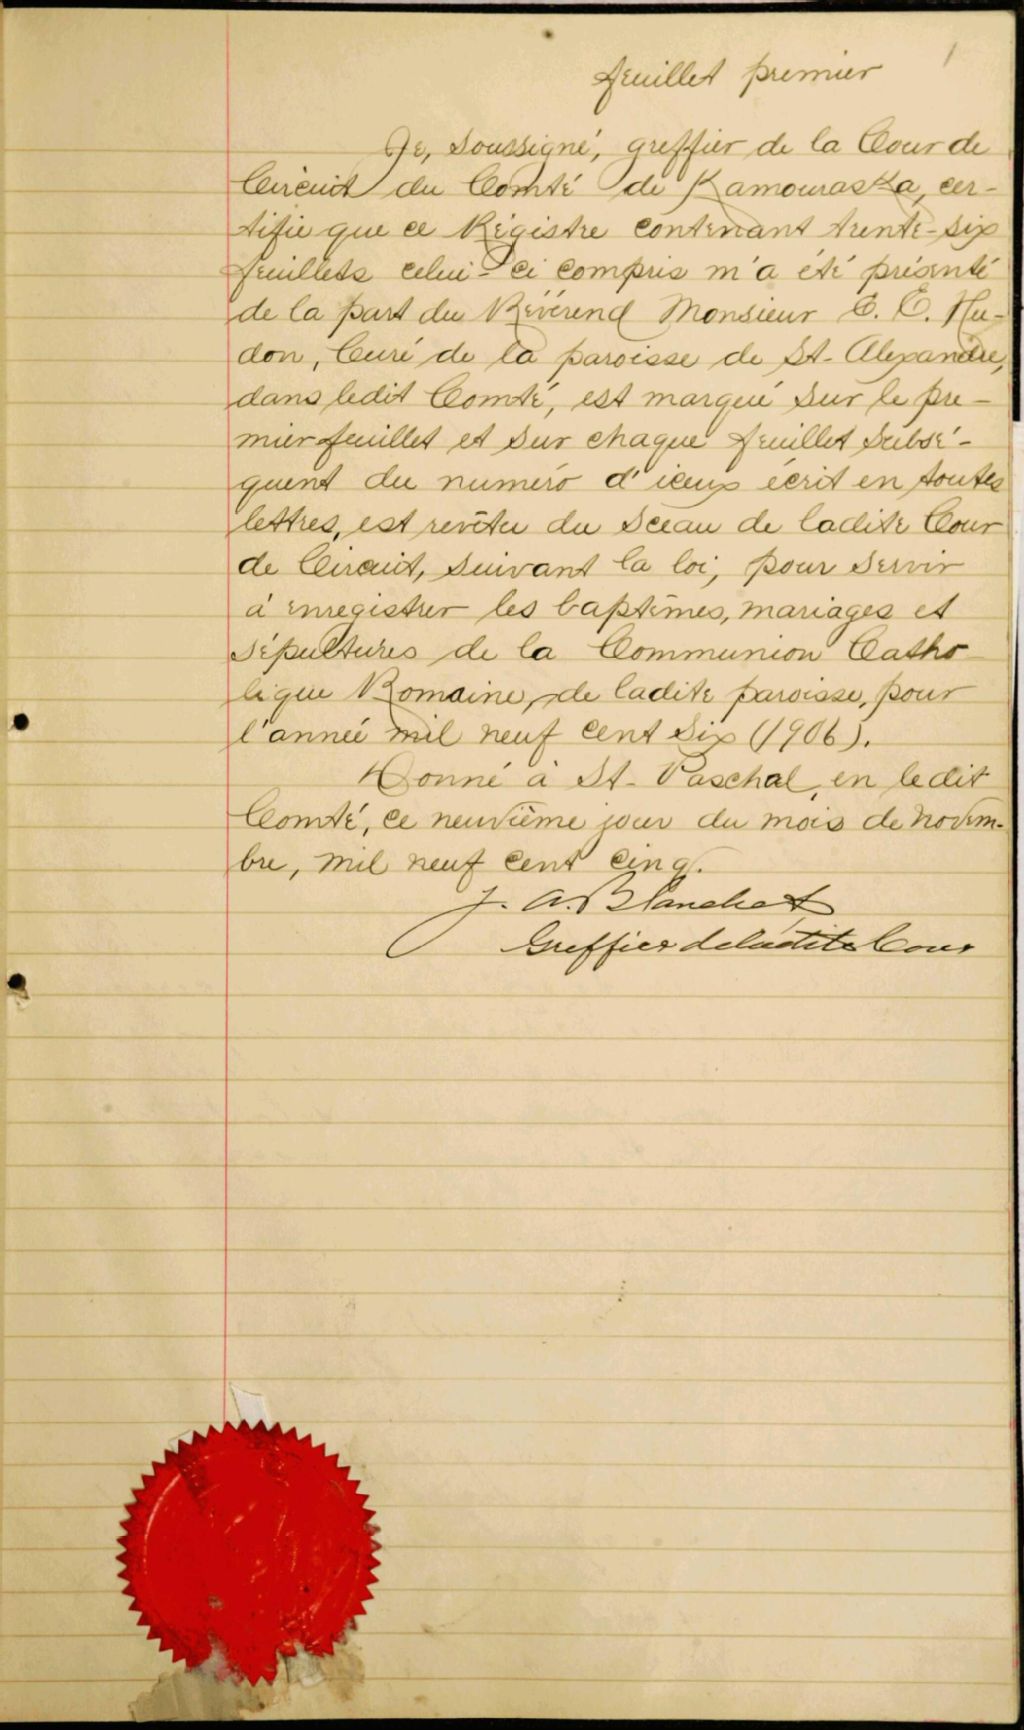 1
feuillet premier
Je, soussigné, greffier de la Cour de
Circuit du Comté de Kamouraska, cer-
tifie que ce Régistre contenant trente-six
feuillets celui-ci compris m'a été présenté
de la part du Révérend Monsieur E. E. Hu-
don, Curé de la paroisse de St-Alexandre,
dans ledit Comté, est marqué sur le pre-
mier feuillet et sur chaque feuillet subsé-
quent du numéro d'iceux écrit en toutes
lettres, est revêtu du sceau de ladite Cour
de Circuit, suivant la loi, pour servir
à enregistrer les baptêmes, mariages et
sépultures de la Communion Catho
lique Romaine, de ladite paroisse, pour
l'année mil neuf cent six (1906).
Donné à St-Paschal, en ledit
Comté, ce neuvième jour du mois de novem-
bre, mil neuf cent cinq.
J. A. Blanchet
Greffier de ladite Cour